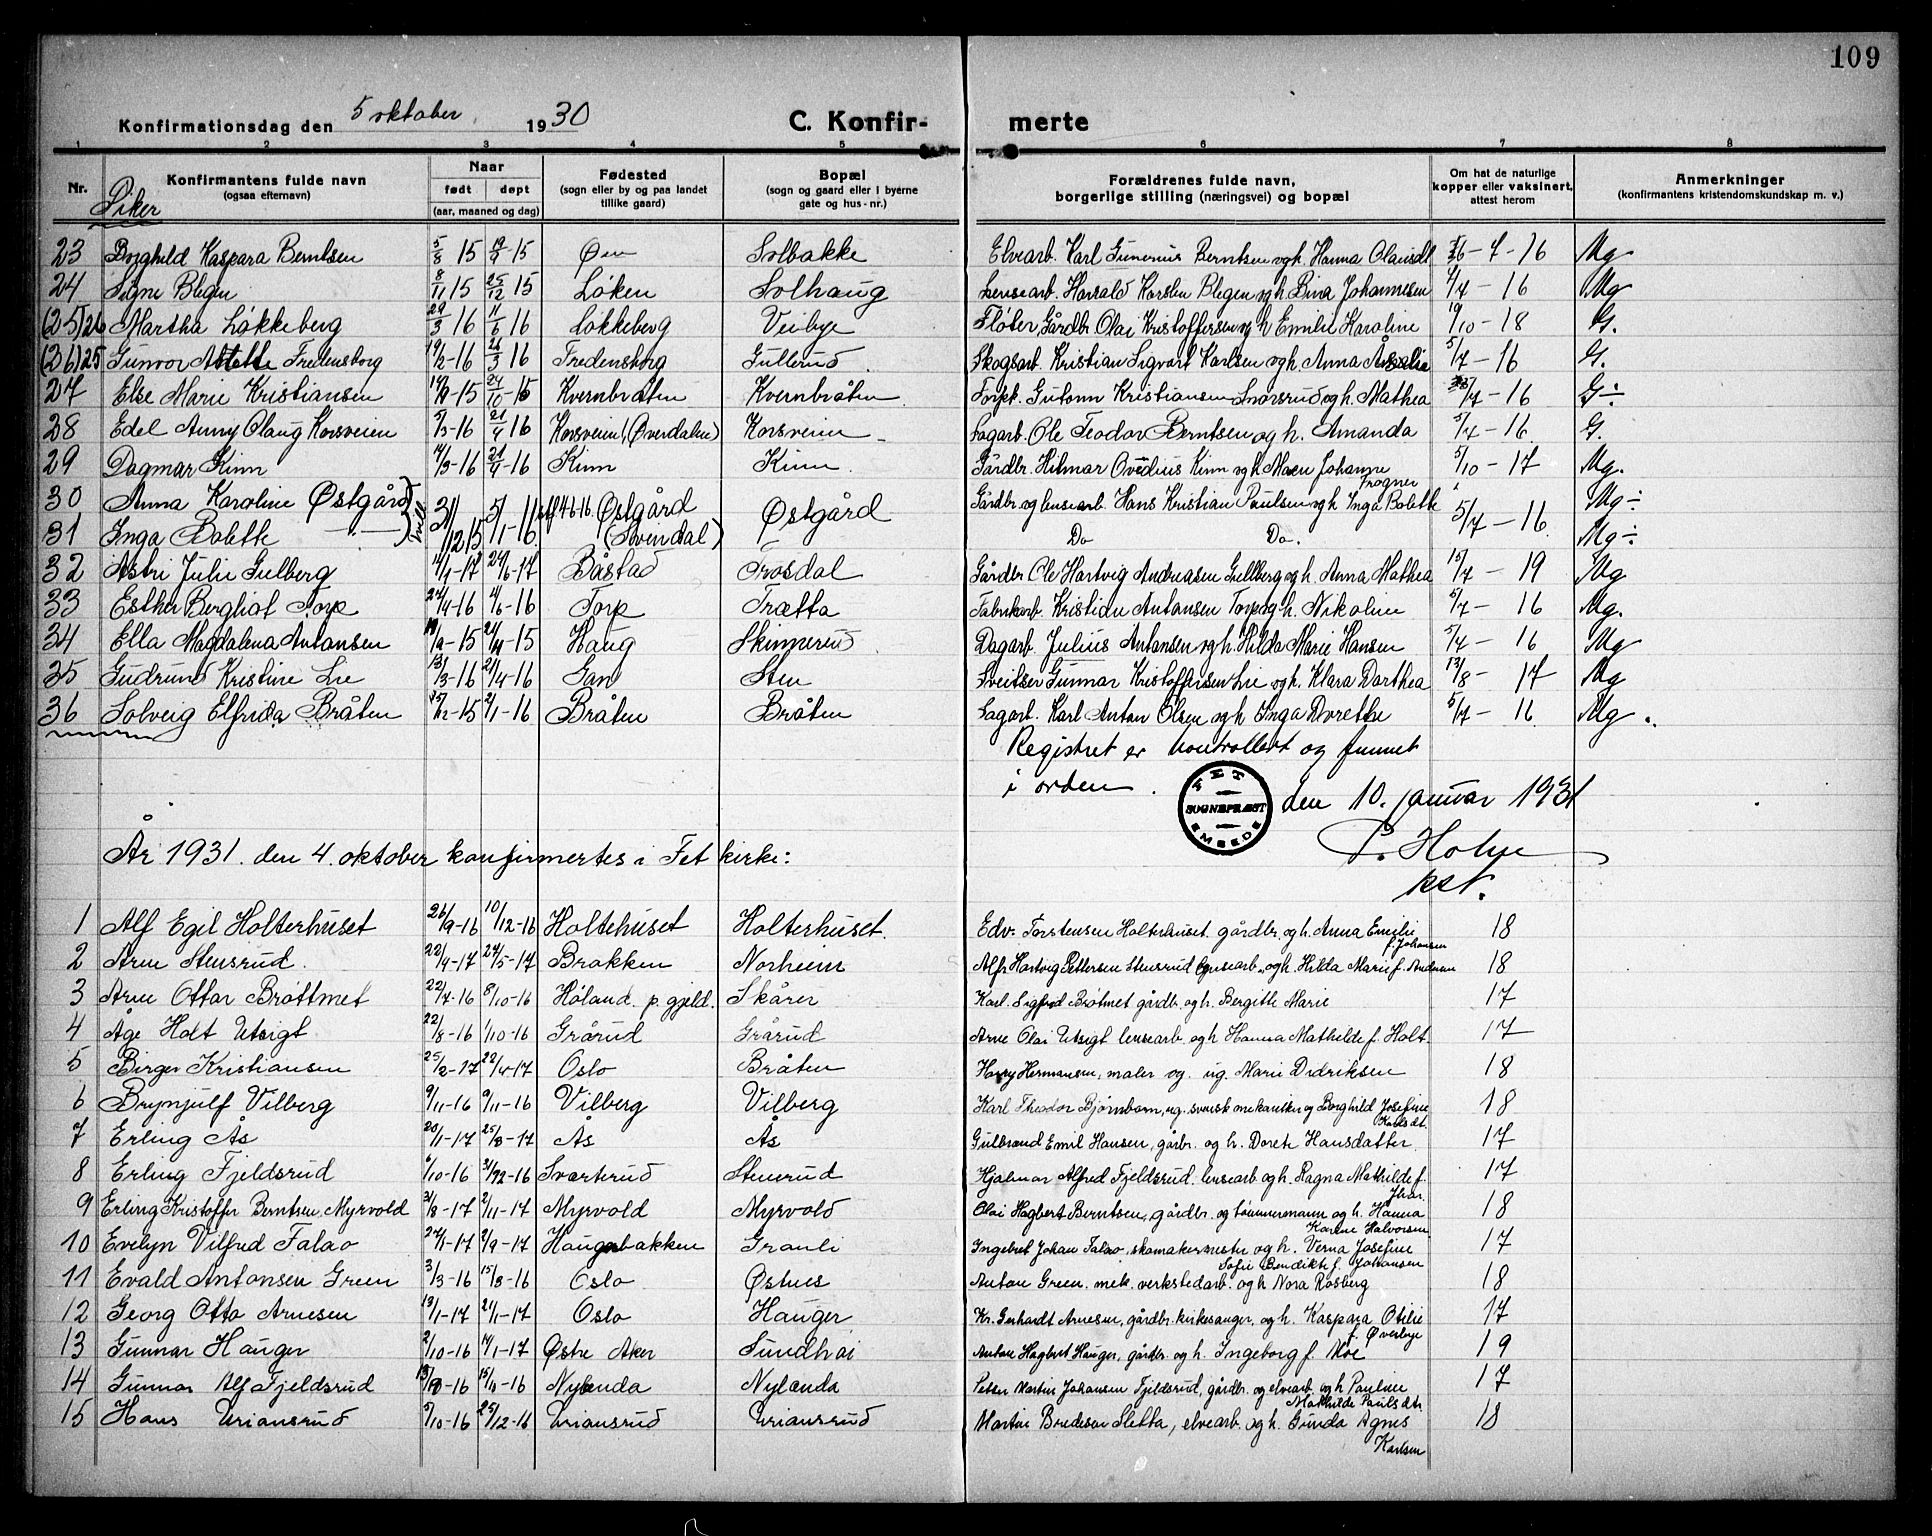 109
Konfirmationsdag den 5 oktober 1930 C. Konfir- merte
1 2 3 4 5 6 7 8
Nr. Konfirmantens fulde navn (ogsaa efternavn) Naar født døpt (aar, maaned og dag) Fødested (sogn eller by og paa landet tillike gaard) Bopæl (sogn og gaard eller i byerne gate og hus-nr.) Forældrenes fulde navn, borgerlige stilling (næringsvei) og bopæl Om hat de naturlige kopper eller vaksinert, attest herom Anmerkninger (konfirmantens kristendomskundskap m. v.)
Piker
23 Borghild Kaspara Berntsen 5/8 15 19/9-15 Øen Solbakke Elvearb. Karl Gunerius Berntsen og h. Hanna Olausdt - 7 - 16 Mg
24 Signe Blegen 8/11 15 25/12 15 Løken Solhaug Lensearb. Harald Karslen Blegen og h. Bina Johannesen 4/7 - 16 Mg
(25) 26 Martha Løkkeberg 29/3 16 11/6 16 Løkkeberg Veibye Fløter, Gårdbr. Olai Kristoffersen og h Emilie Karoline 19/10 - 18 G.
(26) 25 Gunvor Fredensborg 19/2-16 26/3 16 Fredensborg Gullerud Skogsarb. Kristian Sigvart Karlsen og h. Anna 5/7 - 16 G.
27 Else Marie Kristiansen 14/9-15 24/10-15 Kvernbråten Kvernbråten Forpk. Gutorm Kristiansen Snorsrud og h. Mathea /7 - 16 G÷
28 Edel Anny Olaug Korsveien 5/3-16 21/4 16 Korsveien (Øverdalen) Korsveien Sagarb. Ole Teodor Berntsen og h. Amanda 5/7 - 16 G.
29 Dagmar Kinn 4/3-16 21/4-16 Kinn Kinn Gårdbr. Hilmar Ovedius Kinn og h Maren Johanne Frogner 5/10 - 17 Mg.
30 Anna Karoline Østgård 31/12 15 5/1-16 Østgård (Svendal) Østgård Gårdbr og lensearb. Hans Kristian Paulsen og h Inga Bolette 5/7 - 16 Mg÷
31 Inga Bolette Do Do. Mg÷
32 Astri Julie Gulberg 14/1-17 24/6-17 Båstad Trosdal Gårdbr Ole Hartvig Andreasen Gullberg og h. Anna Mathea 15/7 - 19 Mg
33 Esther Bergliot Torp 24/4-16 4/6-16 Torp Trætta Fabrikarb. Kristian Antonsen Torp og h. Nikoline 5/7 - 16 Mg.
34 Ella Magdalena Antonsen 19/9-15 Haug Skinnerud Dagarb. Julius Antonsen og h. Hilda Marie Hansen 5/7 - 16 Mg
35 Gudrund Kristine Lie 13/3-16 21/4-16 Gan Sten Sveitser Gunnar Kristoffersen Lie og h. Klara Dorthea 13/8 - 17 Mg
36 Solveig Elfrida Bråten 25/12-15 2/1-16 Bråten Bråten Sagarb. Karl Anton Olsen og h Inga Dorethe 5/7 - 16 Mg.
Registret er kontrollert og funnet
i orden. FET SOGNEPRÆST EMBEDE den 10. januar 1931
P. Holye
kst.
År 1931. den 4. oktober konfirmertes i Fet kirke:
1 Alf Egil Holterhuset 26/9-16 10/12-16 Holtehuset Holterhuset. Edv. Torstensen Holterhuset. gårdbr. og h. Anna Emilie f. Johansen 18
2 Arne Stensrud. 22/4-17 24/5-17 Brakken Norheim Alfr Hartvig Pettersen Stensrud lensearb., og h Hilda Marie f. Andersen 18
3 Arne Ottar Bröttmet 22/7-16 8/10-16 Høland. p. gjeld. Skårer Karl. Sigfred Brøtmet gårdb. og h. Bergitte Marie 17
4 Åge Holt Utsigt 22/8-16 1/10-16 Grårud Grårud Arne Olai Utsigt lensearb. og h Hanna Mathilde f. Holt. 17
5 Birger Kristiansen 25/2-17 22/4-17 Oslo Bråten Harry Hermansen, maler og ug. Marie Didriksen 18
6 Brynjulf Vilberg 9/11-16 9/11-16 Vilberg Vilberg Karl Theodor Bjørnbom, ug. svensk mekaniker og Borghild Josefine Karlsdt. 18
7 Erling Ås 20/1-17 25/3-17 Ås Ås Gulbrand Emil Hansen, gårbr. og h. Dorete Hansdatter. 17
8 Erling Fjeldsrud 6/10-16 Svarterud Stenerud Hjalmar Alfred Fjeldsrud, lensearb og h. Ragna Mathilde f. 17
9 Erling Kristoffer Berntsen Myrvold 31/8-17 2/11-17 Myrvold Myrvold Olai Hagbert Berntsen, gårdbr. og tømmermann og h. Hanna Karine Halvorsen 18
10 Evelyn Vilfred Falao 24/1-17 2/9-17 Haugerbakken Granli Ingebret Johan Falao, skomakermester og h. Verna Josefine Sofie Bendikte f. Johansen 17
11 Evald Antonsen Green 3/3-16 15/8-16 Oslo Østnes Anton Green. mek. verkstedarb. og h Nora Rosberg 18
12 Georg Otto Arnesen 19/1-17 21/1-17 Oslo Hauger Kr. Gerhardt Arnesen, gårdbr. kirkesanger, og h. Kaspara Otilie f. Øverbye 17
13 Gunnar Hauger 2/10-16 14/1-17 Østre Aker Sundhai Anton Hagbert Hauger, gårdbr. og h. Ingeborg f. Moe 19
14 Gunnar Alf Fjeldsrud -16 -16 Nylænda Nylænda Peter Martin Johansen Fjeldsrud, gårdbr. og elvearb. og h Pauline Mathilde Paulsdt. 17
15 Hans Uriansrud 5/10-16 25/12-16 Uriansrud Uriansrud Martin Bredesen Sletta, elvearb. og h. Gunda Agnes Karlsen 18